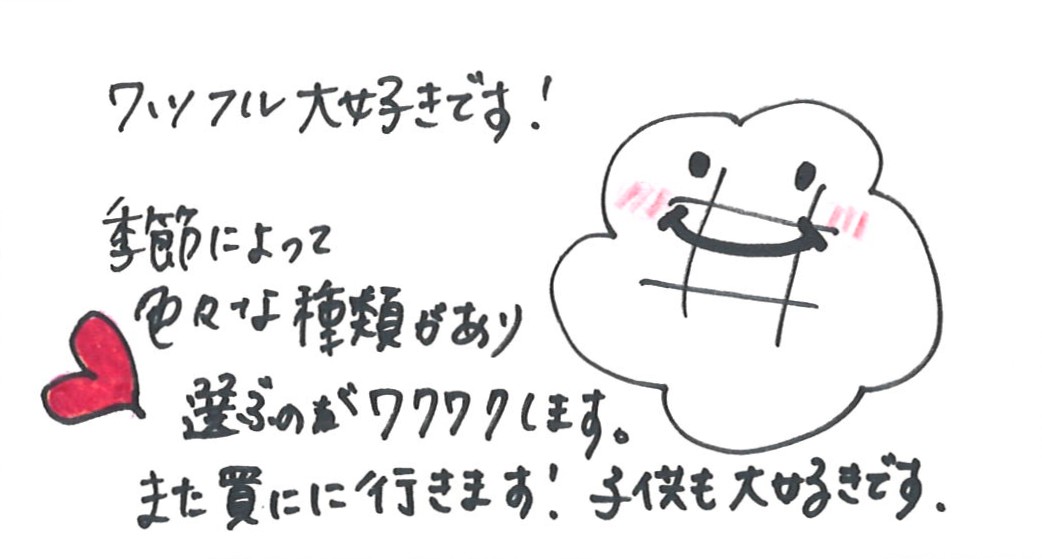 ワッフル大好きです！
季節によって
色々な種類があり
選ぶのがワクワクします。
また買にに行きます！子供も大好きです.